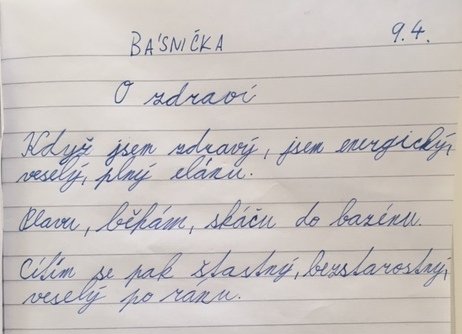 BÁSNIČKA 9.4.
O zdraví
Když jsem zdravý, jsem energický,
veselý, plný elánu.
Plavu, běhám, skáču do bazénu.
Cítím se pak šťastný, bezstarostný,
veselý po ránu.